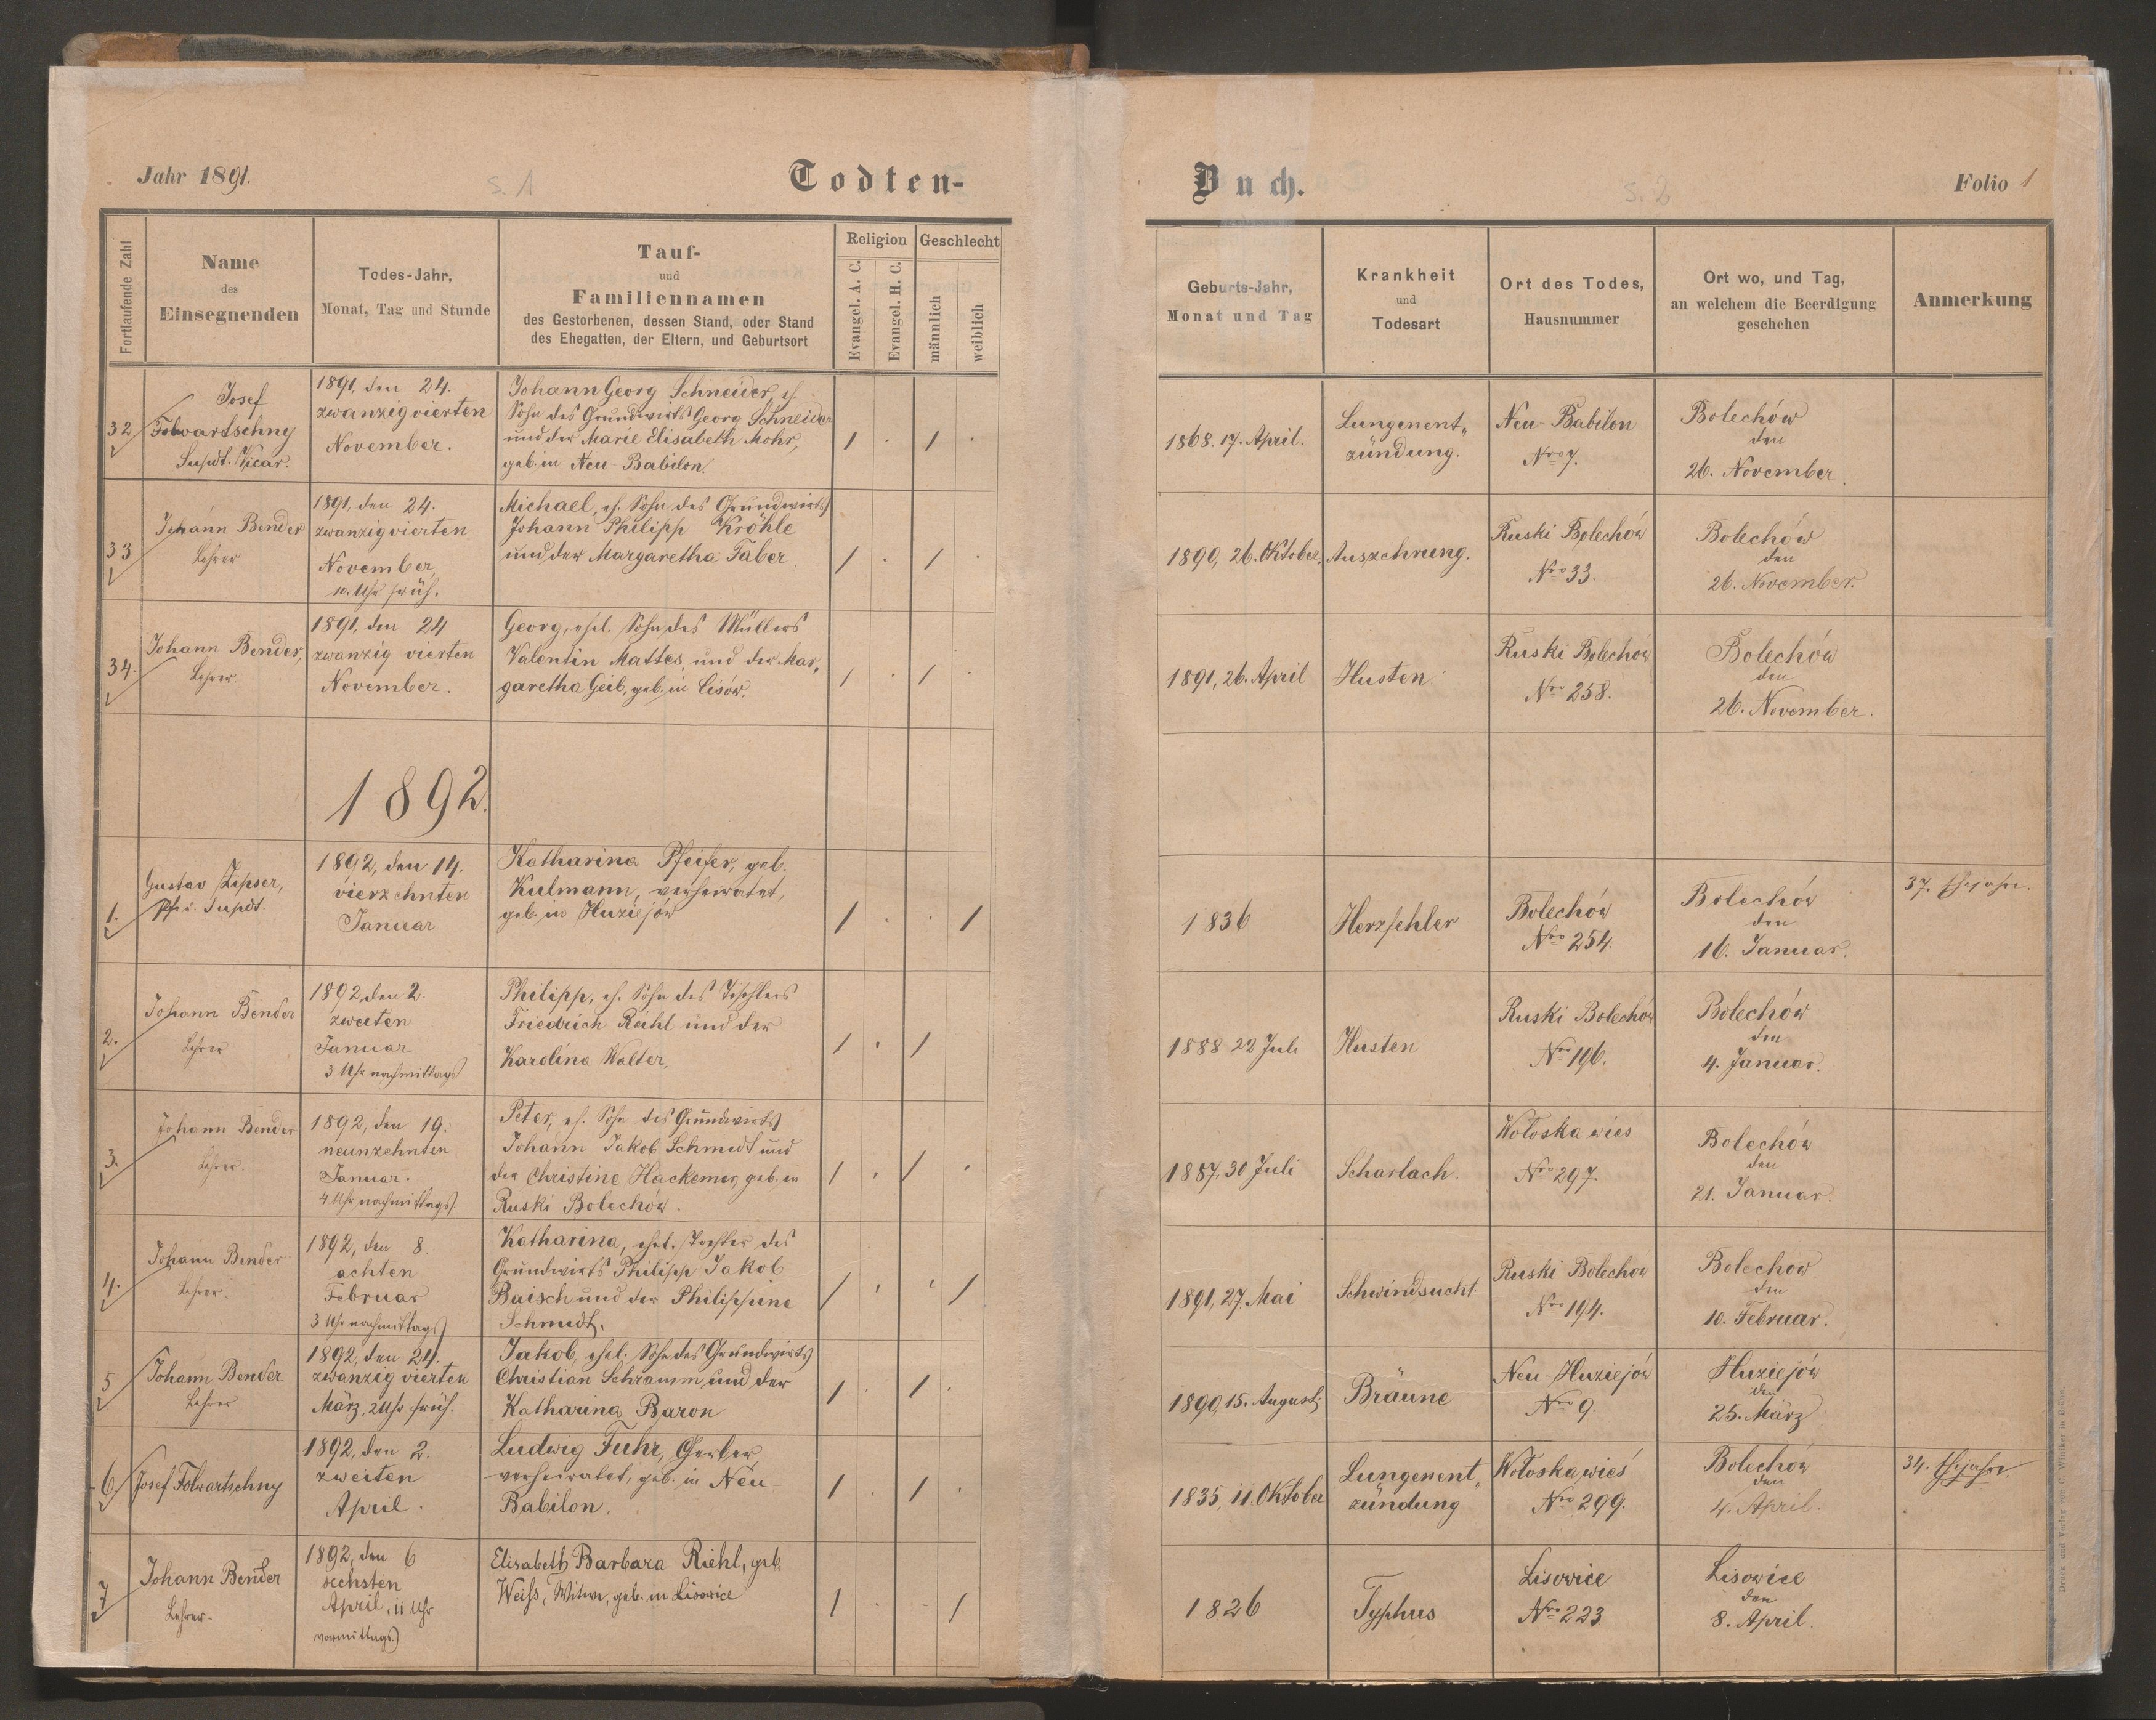 Jahr 1891.
s. 1
Todten-
Fortlaufende Zahl
Name
des
Einsegnenden
Todes-Jahr,
Monat, Tag und Stunde
Tauf-
und
Familiennamen
des Gestorbenen, dessen Stand, oder Stand
des Ehegatten, der Eltern, und Geburtsort
Religion
Evangel. A. C.
Evangel. H. C.
Geschlecht
männlich
weiblich
32
Josef
Folwartschny
Supdt. Vicar.
1891, den 24.
zwanzig vierten
November.
Johann Georg Schneider, eh.
Sohn des Grundwirts Georg Schneider
und der Marie Elisabeth Mohr,
geb. in Neu-Babilon.
/ . / .
33
Johann Bender
Lehrer
1891, den 24.
zwanzigvierten
November,
10. Uhr früh.
Michael, eh. Sohn des Grundwirts
Johann Philipp Kröhle
und der Margaretha Faber.
/ . / .
34.
Johann Bender,
Lehrer.
1891, den 24
zwanzig vierten
November.
Georg, ehel. Sohn des Müllers
Valentin Mattes, und der Mar„
garetha Geib, geb. in Cisów.
/ . / .
1892.
1.
Gustav Zipser,
Pfr. u. Supdt.
1892, den 14.
vierzehnten
Januar
Katharina Pfeifer, geb.
Kulmann, verheiratet,
geb. in Huziejów
/ . . /
2.
Johann Bender
Lehrer
1892, den 2.
zweiten
Januar
3 Uhr nachmittags
Philipp, eh. Sohn des Tischlers
Friedrich Riehl und der
Karolina Walter.
/ . /
3.
Johann Bender
Lehrer.
1892, den 19.
neunzehnten
Januar.
4 Uhr nachmittags
Peter, eh. Sohn des Grundwirts
Johann Jakob Schmidt und
der Christine Hackemer, geb. in
Ruski Bolechów.
/ . / .
4.
Johann Bender
Lehrer.
1892, den 8.
achten
Februar
3 Uhr nachmittags
Katharina, ehel. Tochter des
Grundwirts Philipp Jakob
Baisch und der Philippine
Schmidt.
/ . . /
5
Johann Bender
Lehrer
1892, den 24.
zwanzig vierten
März, 2 Uhr früh.
Jakob, ehel. Sohn des Grundwirts
Christian Schramm, und der
Katharina Baron
/ . / .
6
Josef Folwartschny
1892, den 2.
zweiten
April.
Ludwig Fuhr, Gerber,
verheiratet, geb. in Neu
Babilon.
/ . / .
7
Johann Bender
Lehrer.
1892, den 6
sechsten
April, 11 Uhr
vormittags)
Elisabeth Barbara Riehl, geb.
Weiss, Witwe, geb. in Lisowice
/ . . /
Buch.
s. 2
Folio 1
Geburts-Jahr,
Monat und Tag
Krankheit
und
Todesart
Ort des Todes,
Hausnummer
Ort wo, und Tag,
an welchem die Beerdigung
geschehen
Anmerkung
1868. 17. April.
Lungenent„
zündung.
Neu-Babilon
Nro 7.
Bolechów
den
26. November.
1890, 26. Oktober.
Auszehrung.
Ruski Bolechów
Nro 33.
Bolechów
den
26. November.
1891, 26. April
Husten.
Ruski Bolechów
Nro 258.
Bolechów
den
26. November.
1836
Herzfehler
Bolechów
Nro 254.
Bolechów
den
16. Januar.
37. Ehejahr.
1888 22 Juli
Husten
Ruski Bolechów
Nro 196.
Bolechów
den
4. Januar.
1887, 30 Juli
Scharlach.
Wołoska wies
Nro 297.
Bolechów
den
21. Januar.
1891, 27. Mai
Schwindsucht
Ruski Bolechow
Nro 194.
Bolechow
den
10. Februar.
1890, 15. August,
Bräune
Neu-Huziejów
Nro 9.
Huziejów
den
25. März
1835, 11. Oktober
Lungenent„
zündung
Wołoska wieś
Nro 299.
Bolechów
den
4. April.
34. Ehejahr.
1826
Typhus
Lisowice
Nro 223
Lisowice
den
8. April.